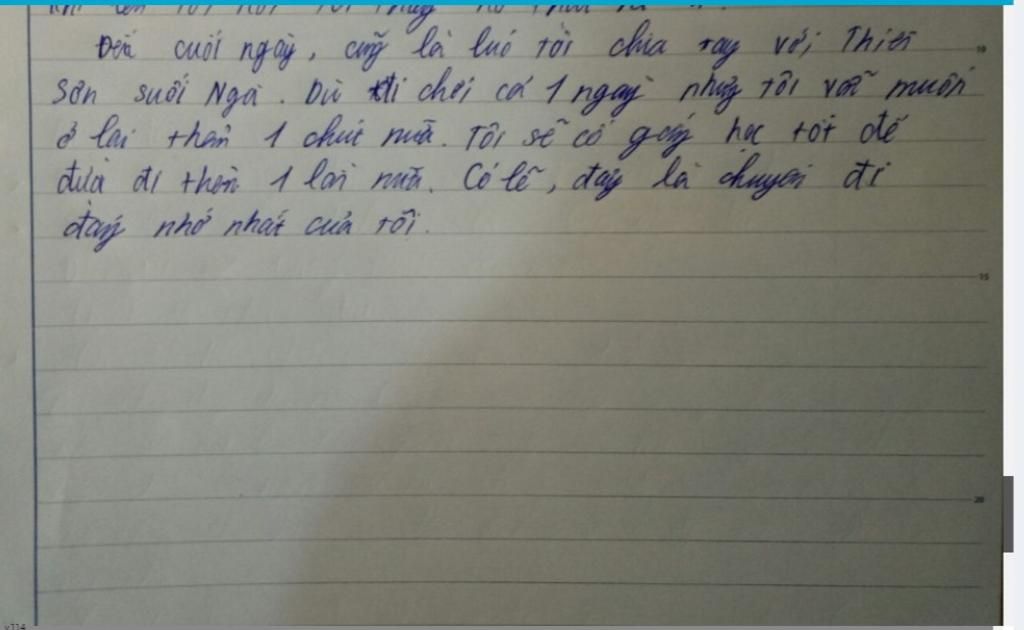 Đến cuối ngày, cũng là lúc tôi chia tay với Thiên
Sơn suối Ngà. Dù đi chơi cả 1 ngày nhưng tôi vẫn muốn
ở lại thêm 1 chút nữa. Tôi sẽ cố gắng học tốt để
được đi thêm 1 lần nữa. Có lẽ, đây là chuyến đi
đáng nhớ nhất của tôi.
10
15
20